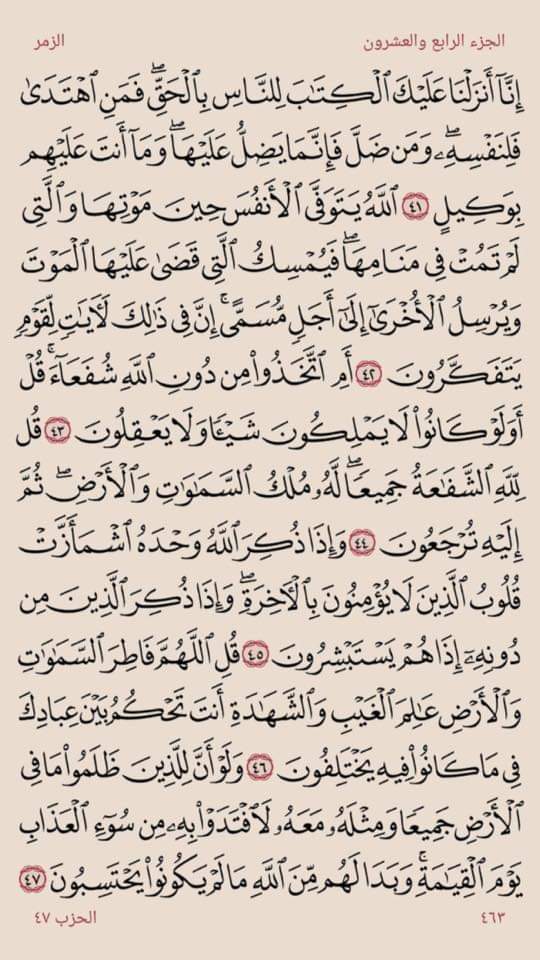 الجزء الرابع والعشرون
الزمر
إِنَّآ أَنزَلْنَا عَلَيْكَ ٱلْكِتَٰبَ لِلنَّاسِ بِٱلْحَقِّۖ فَمَنِ ٱهْتَدَىٰ
فَلِنَفْسِهِۦۖ وَمَن ضَلَّ فَإِنَّمَا يَضِلُّ عَلَيْهَاۖ وَمَآ أَنتَ عَلَيْهِم
بِوَكِيلٍ ٤١ ٱللَّهُ يَتَوَفَّى ٱلْأَنفُسَ حِينَ مَوْتِهَا وَٱلَّتِى
لَمْ تَمُتْ فِى مَنَامِهَاۖ فَيُمْسِكُ ٱلَّتِى قَضَىٰ عَلَيْهَا ٱلْمَوْتَ
وَيُرْسِلُ ٱلْأُخْرَىٰٓ إِلَىٰٓ أَجَلٍ مُّسَمًّىۚ إِنَّ فِى ذَٰلِكَ لَءَايَٰتٍ لِّقَوْمٍ
يَتَفَكَّرُونَ ٤٢ أَمِ ٱتَّخَذُوا۟ مِن دُونِ ٱللَّهِ شُفَعَآءَۚ قُلْ
أَوَلَوْ كَانُوا۟ لَا يَمْلِكُونَ شَيْـًٔا وَلَا يَعْقِلُونَ ٤٣ قُل
لِّلَّهِ ٱلشَّفَٰعَةُ جَمِيعًاۖ لَّهُۥ مُلْكُ ٱلسَّمَٰوَٰتِ وَٱلْأَرْضِۖ ثُمَّ
إِلَيْهِ تُرْجَعُونَ ٤٤ وَإِذَا ذُكِرَ ٱللَّهُ وَحْدَهُ ٱشْمَأَزَّتْ
قُلُوبُ ٱلَّذِينَ لَا يُؤْمِنُونَ بِٱلْءَاخِرَةِۖ وَإِذَا ذُكِرَ ٱلَّذِينَ مِن
دُونِهِۦٓ إِذَا هُمْ يَسْتَبْشِرُونَ ٤٥ قُلِ ٱللَّهُمَّ فَاطِرَ ٱلسَّمَٰوَٰتِ
وَٱلْأَرْضِ عَٰلِمَ ٱلْغَيْبِ وَٱلشَّهَٰدَةِ أَنتَ تَحْكُمُ بَيْنَ عِبَادِكَ
فِى مَا كَانُوا۟ فِيهِ يَخْتَلِفُونَ ٤٦ وَلَوْ أَنَّ لِلَّذِينَ ظَلَمُوا۟ مَا فِى
ٱلْأَرْضِ جَمِيعًا وَمِثْلَهُۥ مَعَهُۥ لَٱفْتَدَوْا۟ بِهِۦ مِن سُوٓءِ ٱلْعَذَابِ
يَوْمَ ٱلْقِيَٰمَةِۚ وَبَدَا لَهُم مِّنَ ٱللَّهِ مَا لَمْ يَكُونُوا۟ يَحْتَسِبُونَ ٤٧
٤٦٣
الحزب ٤٧